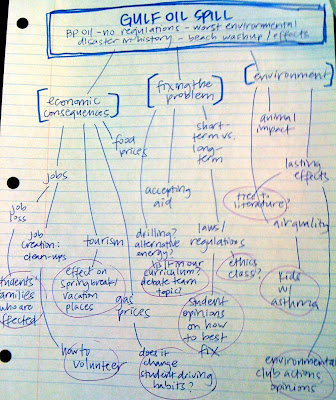 GULF OIL SPILL
BP oil - no regulations - worst environmental
disaster in history - beach washup/effects
[economic
consequences]
[fixing the
problem]
[environment]
jobs
job
loss
students'
families
who are
affected
job
creation:
clean-ups
how to
volunteer
tourism
effect on
spring break/
vacation
places
food
prices
gas
prices
does it
change
student driving
habits?
accepting
aid
drilling?
alternative
energy?
is it in our
curriculum?
debate team
topic?
short-
term vs.
long-
term
laws/
regulations
student
opinions
on how
to best
fix
ethics
class?
animal
impact
tied to
literature?
lasting
effects
air quality
kids
w/
asthma
environmental
club actions
opinions